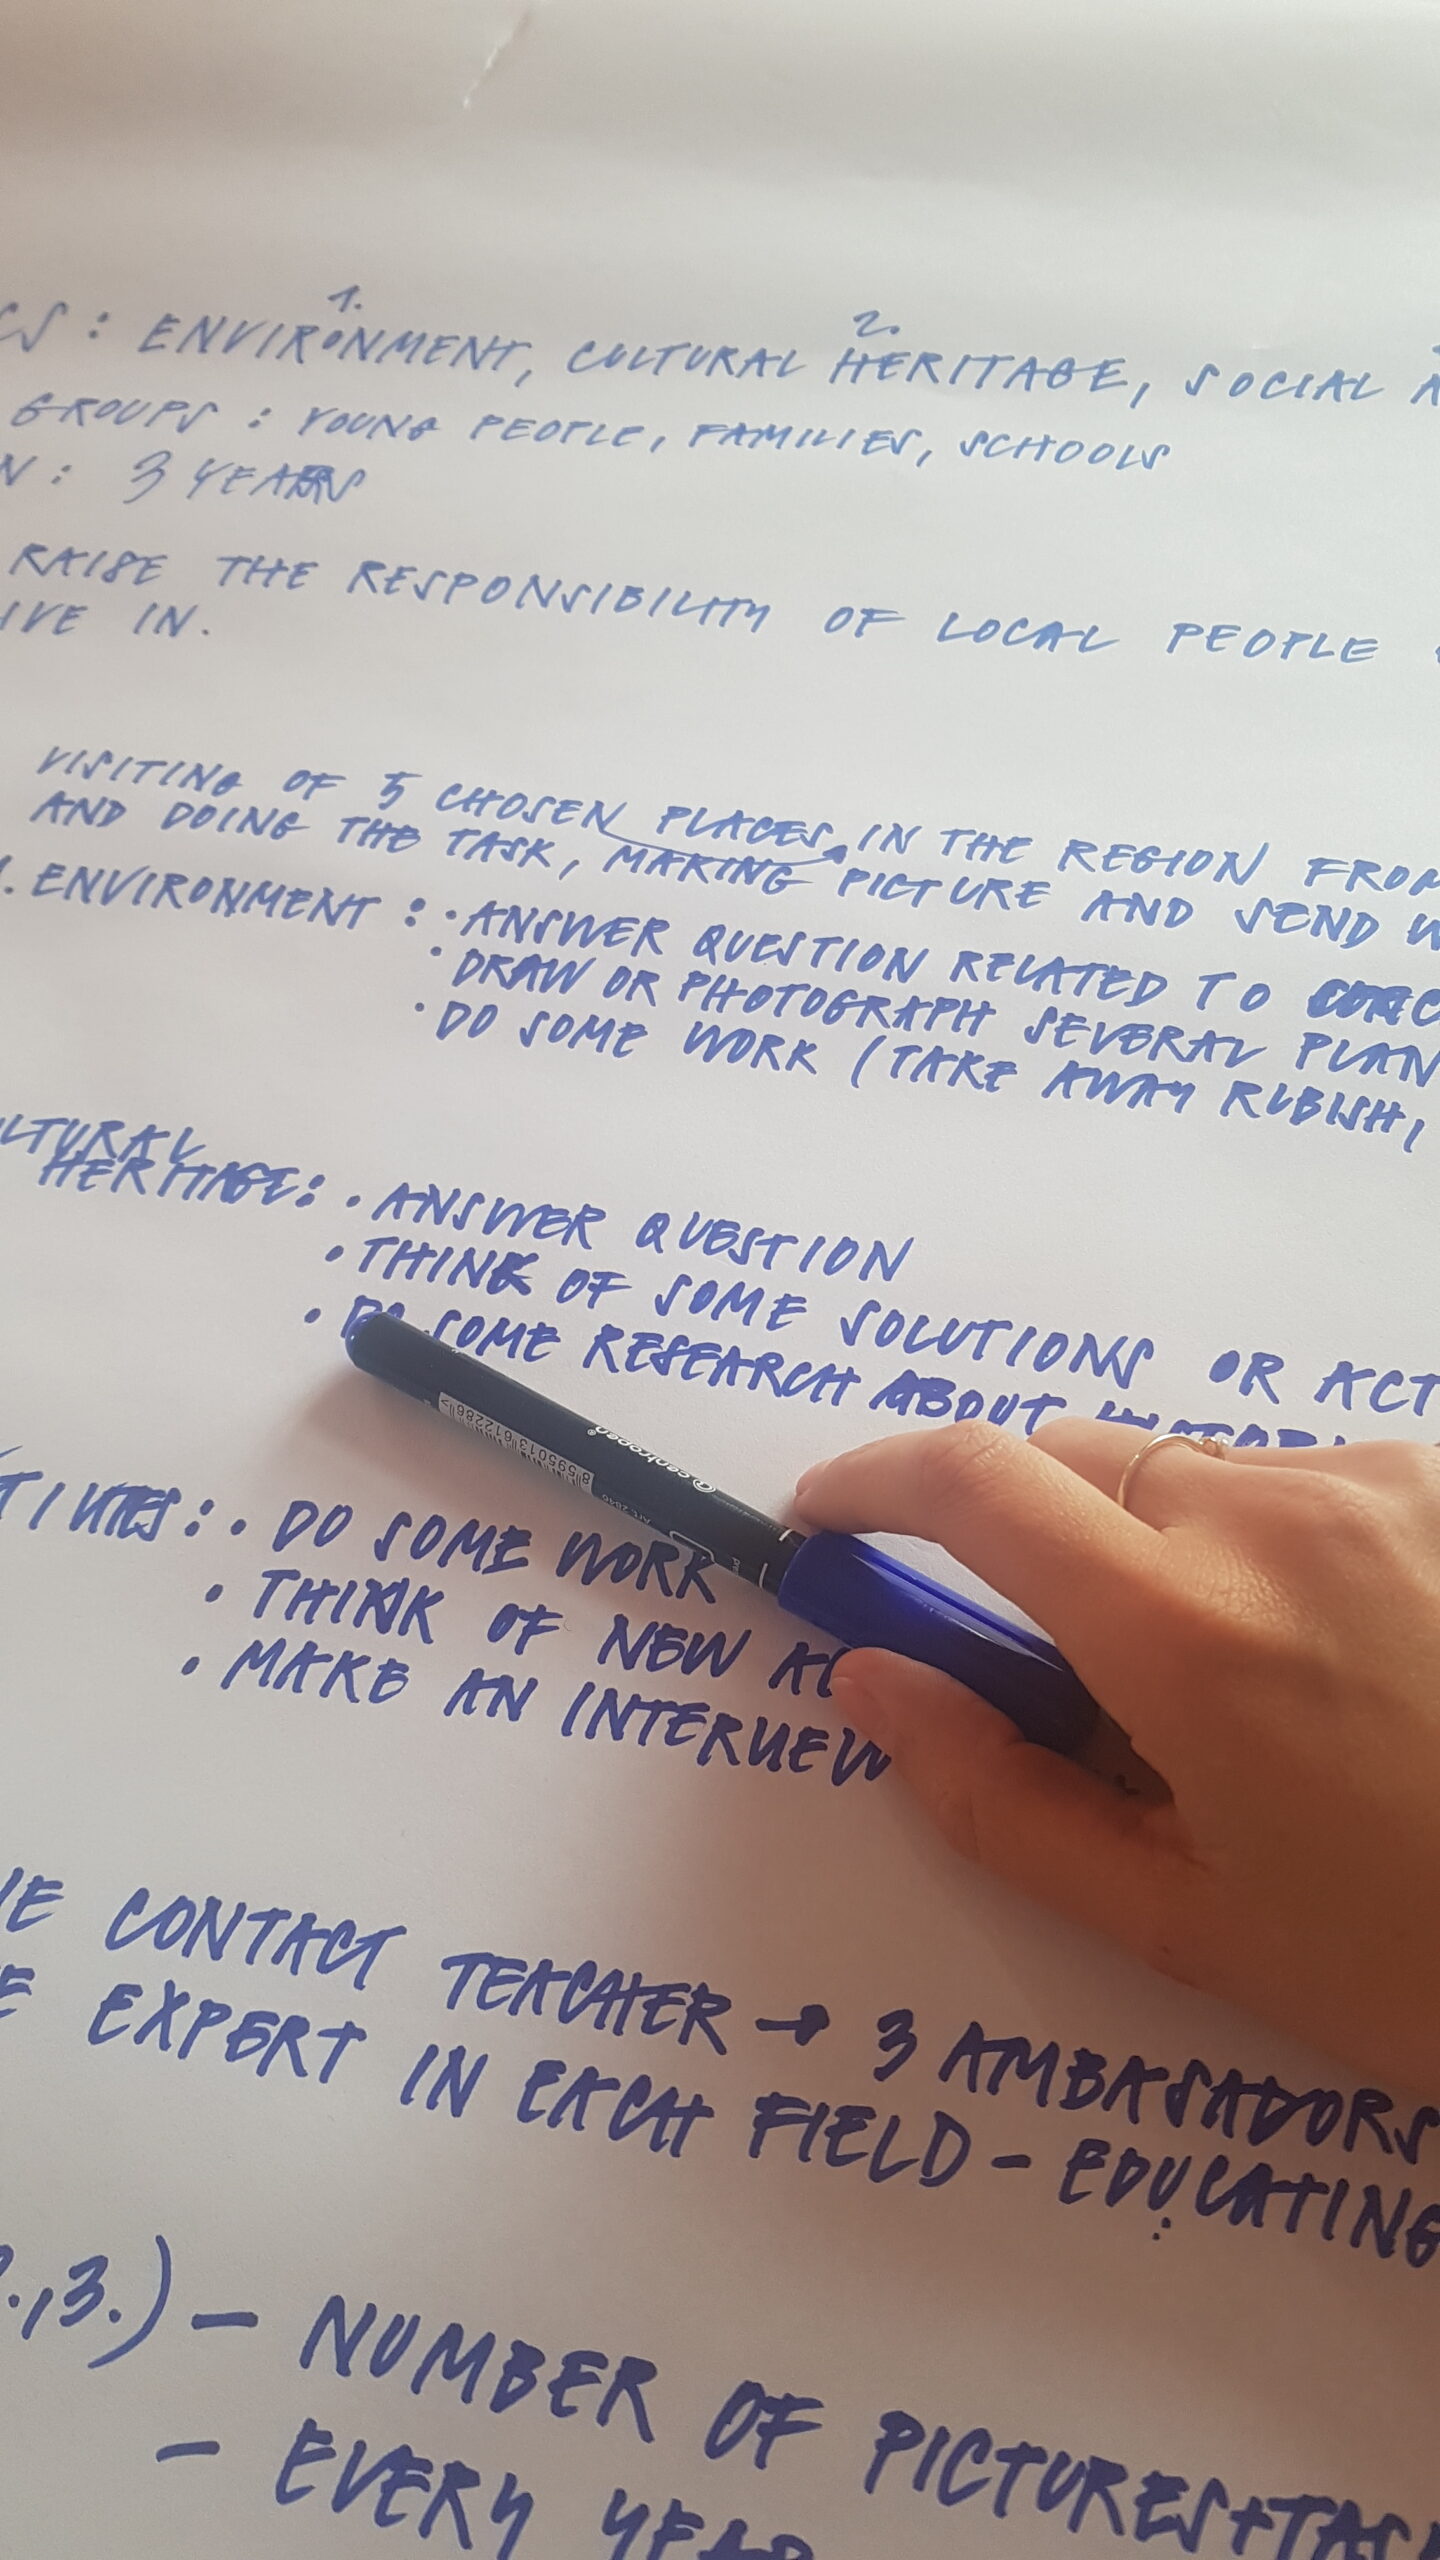 1. 2.
CS: ENVIRONMENT, CULTURAL HERITAGE, SOCIAL A
GROUPS: YOUNG PEOPLE, FAMILIES, SCHOOLS
N: 3 YEARS
RAISE THE RESPONSIBILITY OF LOCAL PEOPLE
IVE IN.
VISITING OF 5 CHOSEN PLACES IN THE REGION FROM
AND DOING THE TASK, MAKING PICTURE AND SEND W
1. ENVIRONMENT: • ANSWER QUESTION RELATED TO
• DRAW OR PHOTOGRAPH SEVERAL PLAN
• DO SOME WORK (TAKE AWAY RUBISH,
LTURAL
HERITAGE: • ANSWER QUESTION
• THINK OF SOME SOLUTIONS OR ACT
• DO SOME RESEARCH ABOUT
centropen
8 595013 612286 >
TIVITES: • DO SOME WORK
• THINK OF NEW AC
• MAKE AN INTERVIEW
NE CONTACT TEACHER → 3 AMBASADORS
E EXPERT IN EACH FIELD - EDUCATING
2.,3.) - NUMBER OF PICTURES+TAS
- EVERY YEAR